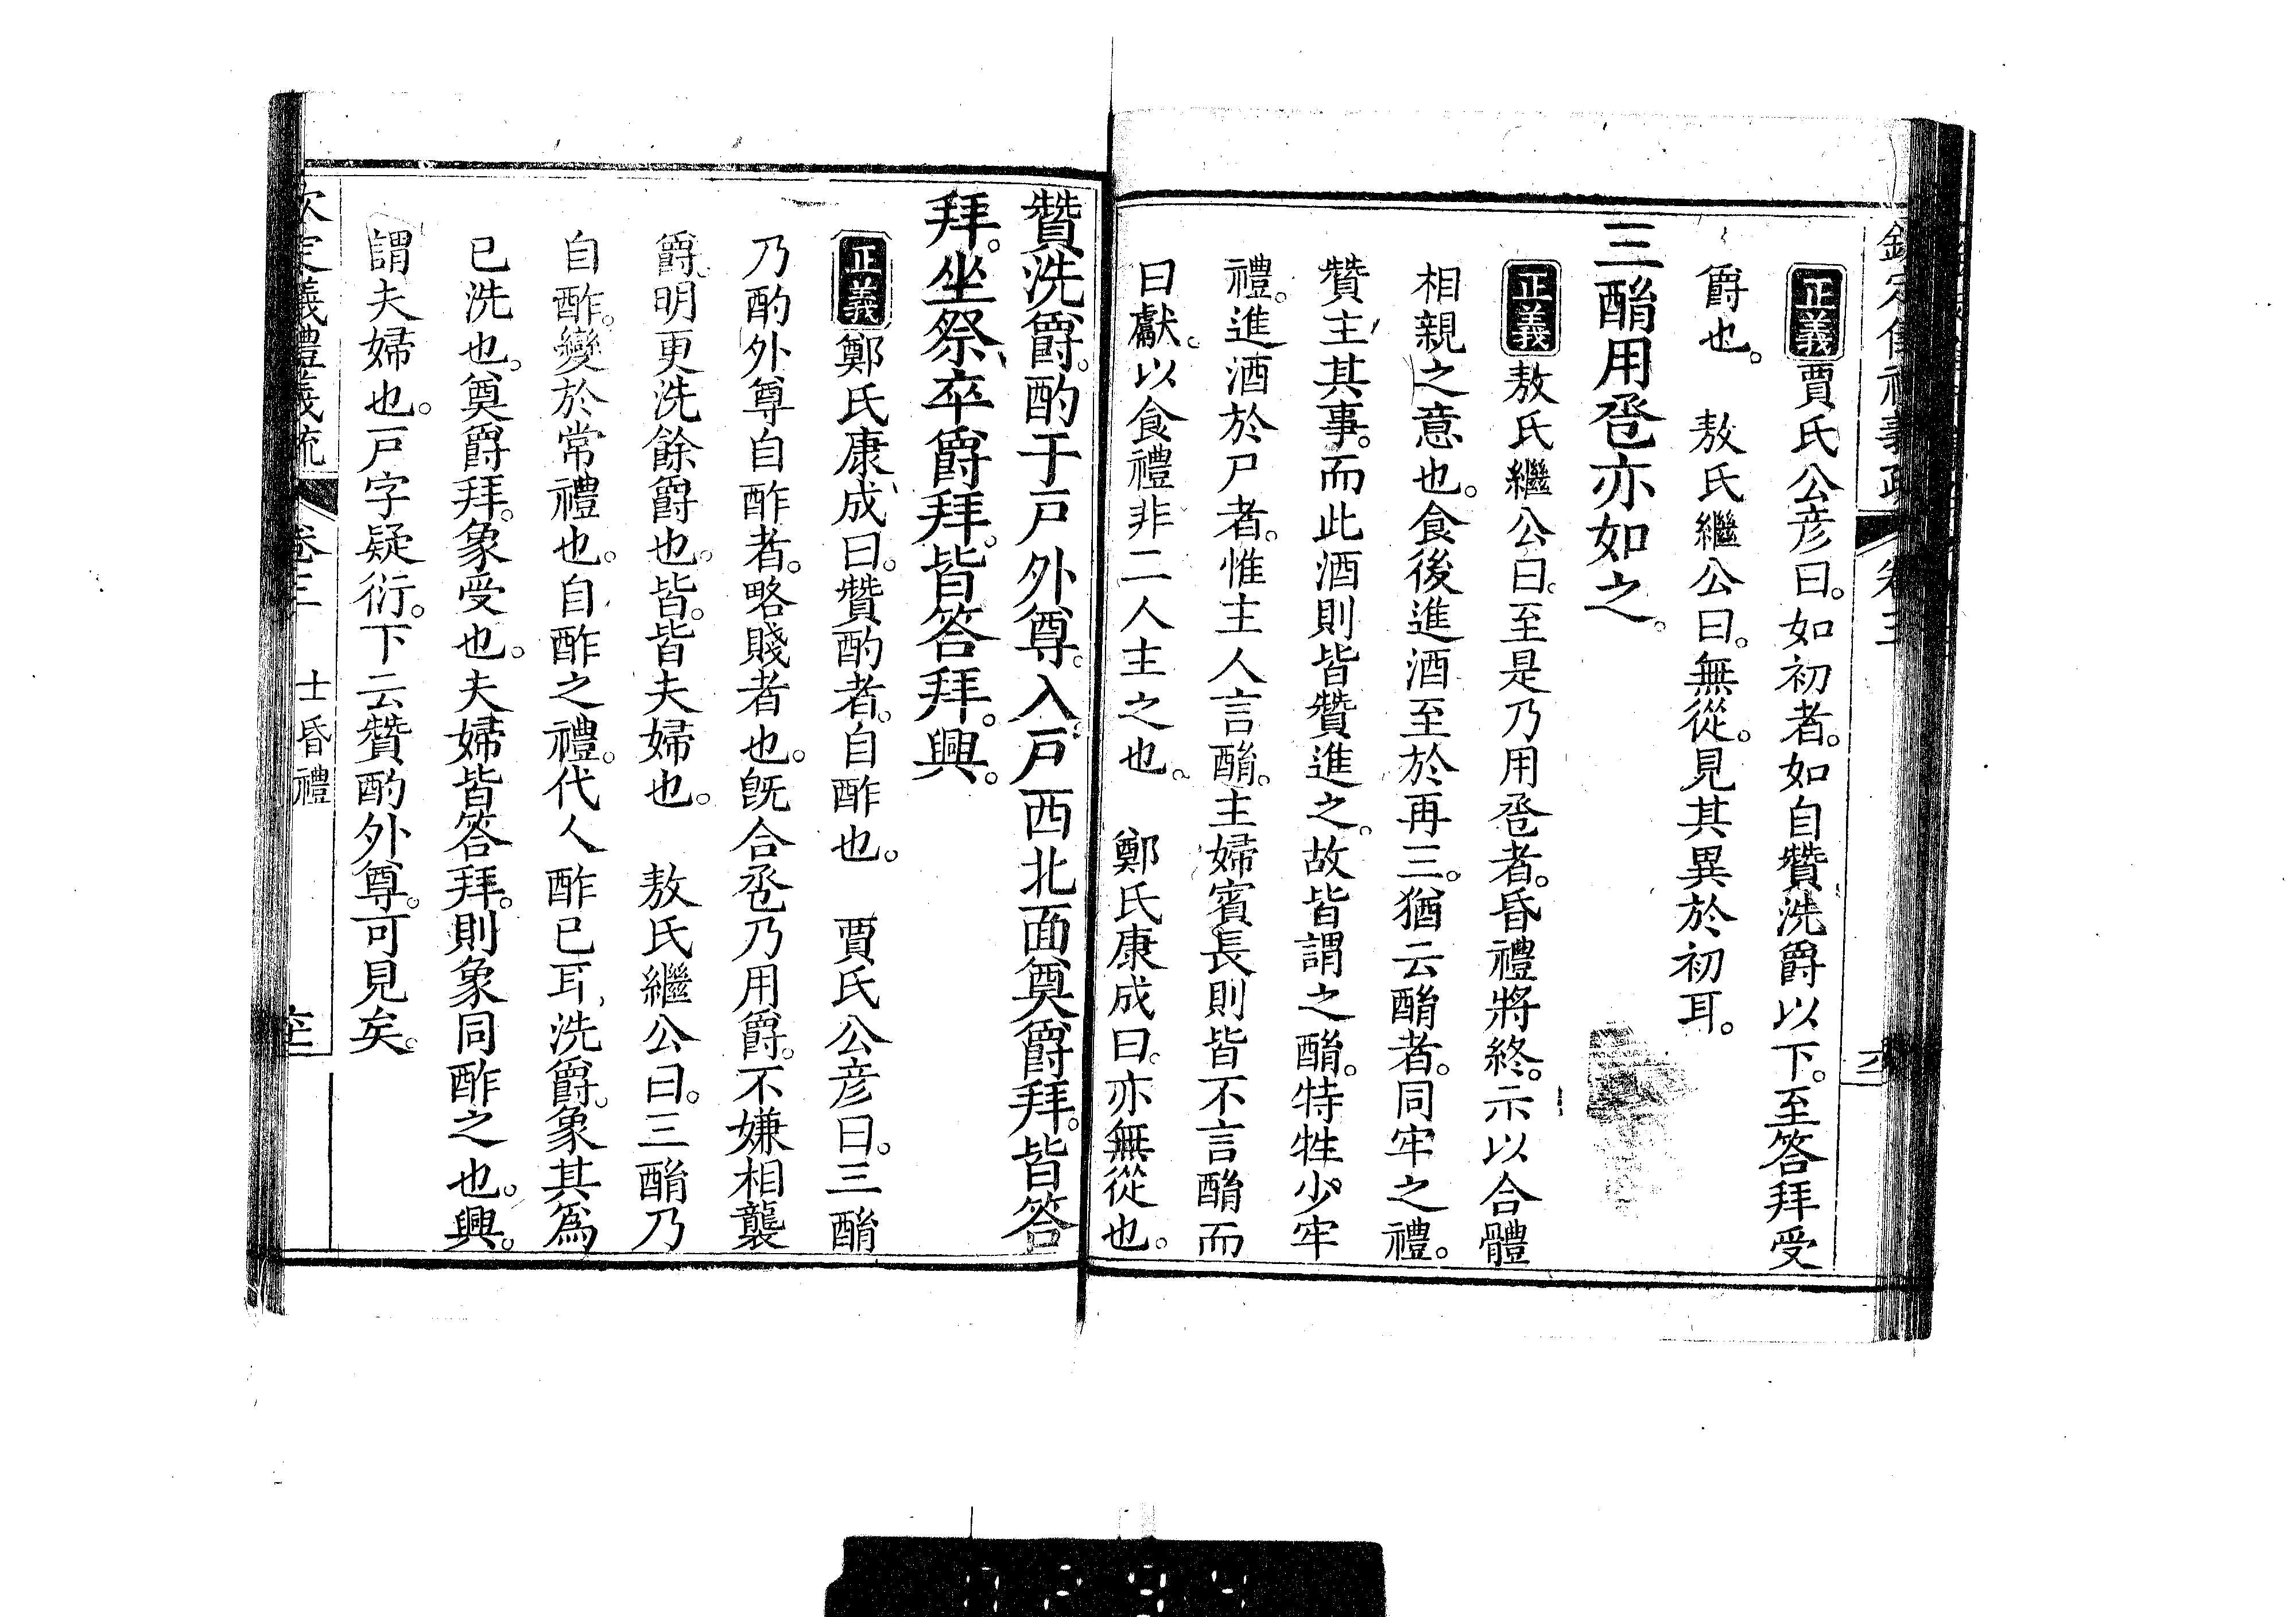 正義賈氏公彥曰。如初者。如自贊洗爵以下。至答拜受
爵也。　敖氏繼公曰。無從。見其異於初耳。
三酳用卺亦如之。
正義敖氏繼公曰。至是乃用卺者。昏禮將終。示以合體
相親之意也。食後進酒至於再三。猶云酳者。同牢之禮。
贊主其事。而此酒則皆贊進之。故皆謂之酳。特牲少牢
禮。進酒於尸者。惟主人言酳。主婦賓長則皆不言酳而
曰獻。以食禮非二人主之也。　鄭氏康成曰。亦無從也。
贊洗爵。酌于戸外尊。入戸西北面奠爵拜。皆答
拜。坐祭卒爵拜。皆答拜。興。
正義鄭氏康成曰。贊酌者。自酢也。　賈氏公彥曰。三酳
乃酌外尊自酢者。略賤者也。既合卺乃用爵。不嫌相襲
爵。明更洗餘爵也。皆。皆夫婦也。　敖氏繼公曰。三酳乃
自酢。變於常禮也。自酢之禮。代人酢已耳。洗爵。象其爲
已洗也。奠爵拜。象受也。夫婦皆答拜。則象同酢之也。興。
謂夫婦也。戸字疑衍。下云贊酌外尊。可見矣。
定義禮義疏　卷三　士昏禮